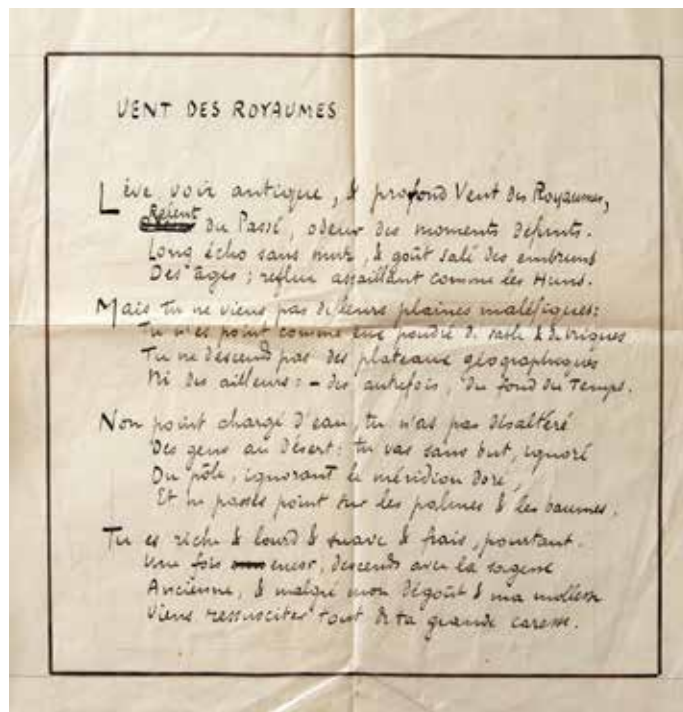 VENT DES ROYAUMES
Lève, voix antique, & profond Vent des Royaumes,
Relent du Passé, odeur des moments défunts.
Long écho sans mur, & goût salé des embruns
Des âges ; reflux assaillant comme les Huns.
Mais tu ne viens pas de leurs plaines maléfiques:
Tu n'es point comme eux poudré de sable & de briques
Tu ne descends pas des plateaux géographiques
Ni des ailleurs : – des autrefois, du fond du Temps.
Non point chargé d'eau, tu n'as pas désaltéré
Des gens au désert : tu vas sans but, ignoré
Du pôle, ignorant le méridion doré,
Et ne passes point sur les palmes & les baumes.
Tu es riche & lourd & suave & frais, pourtant.
Une fois encor, descends avec la sagesse
Ancienne, & malgré mon dégoût & ma mollesse
Viens ressusciter tout de ta grande caresse.